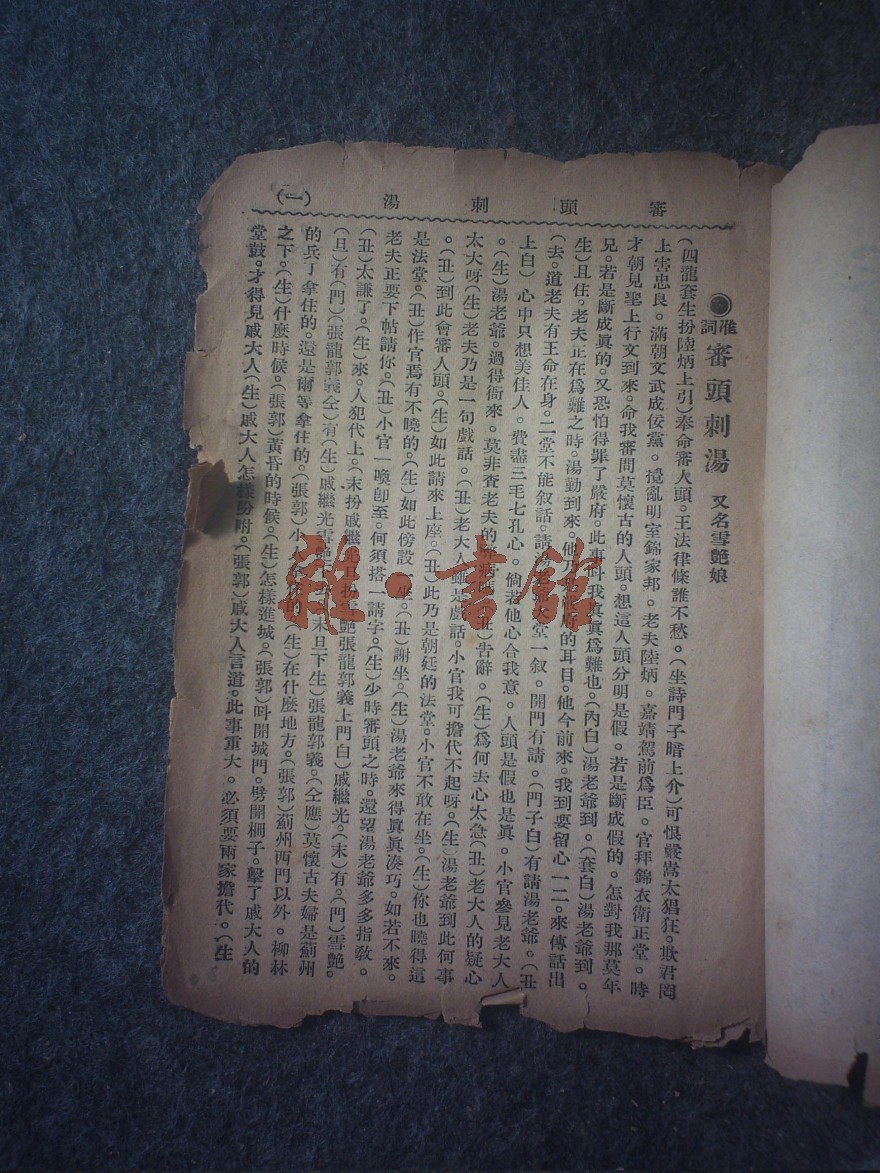 審頭刺湯 (一)
准詞 審頭刺湯 又名雪艷娘
(四龍套生扮陸炳上引)奉命審人頭。王法律條誰不愁。(坐詩門子暗上介)可恨嚴嵩太猖狂。欺君罔
上害忠良。滿朝文武成佞黨。擾亂明室錦家邦。老夫陸炳。嘉靖駕前爲臣。官拜錦衣衛正堂。時
才朝見聖上行文到來。命我審問莫懷古的人頭。想這人頭分明是假。若是斷成假的。怎對我那莫年
兄。若是斷成眞的。又恐怕得罪了嚴府。此事叫我眞眞爲難也。(內白)湯老爺到。(套白)湯老爺到。
生)且住。老夫正在爲難之時。湯勤到來。他乃是嚴府的耳目。他今前來。我到要留心一二。來傳話出
(去。道老夫有王命在身。二堂不能叙話。請湯老爺大堂一叙。開門有請。(門子白)有請湯老爺。(丑
上白)心中只想美佳人。費盡三毛七孔心。倘若他心合我意。人頭是假也是眞。小官參見老大人
。(生)湯老爺。過得衙來。莫非查老夫的 丑)告辭。(生)爲何去心太急(丑)老大人的疑心
太大呀(生)老夫乃是一句戲話。(丑)老大人雖是戲話。小官我可擔代不起呀。(生)湯老爺到此何事
。(丑)到此會審人頭。(生)如此請來上座。(丑)此乃是朝廷的法堂。小官不敢在坐。(生)你也曉得這
是法堂。(丑)作官焉有不曉的。(生)如此傍設一坐。(丑)謝坐。(生)湯老爺來得眞眞湊巧。如若不來。
老夫正要下帖請你。(丑)小官一喚卽至。何須搭一請字。(生)少時審頭之時。還望湯老爺多多指敎。
(丑)太謙了。(生)來。人犯代上。(末扮戚繼光 扮雪艷張龍郭義上門白)戚繼光。(末)有。(門)雪艷。
(旦)有(門)(張龍郭義仝)有(生)戚繼光雪艷 末旦下生)張龍郭義。(仝應)莫懷古夫婦是薊州
的兵丁拿住的。還是爾等拿住的。(張郭)小人 住的(生)在什麽地方。(張郭)薊州西門以外。柳林
之下。(生)什麽時候。(張郭)黃昏的時候。(生)怎樣進城。(張郭)呌開城門。劈開柵子。擊了戚大人的
堂鼓。才得見戚大人(生)戚大人怎樣吩咐。(張郭)戚大人言道。此事重大。必須要兩家擔代。(生
雜·書館